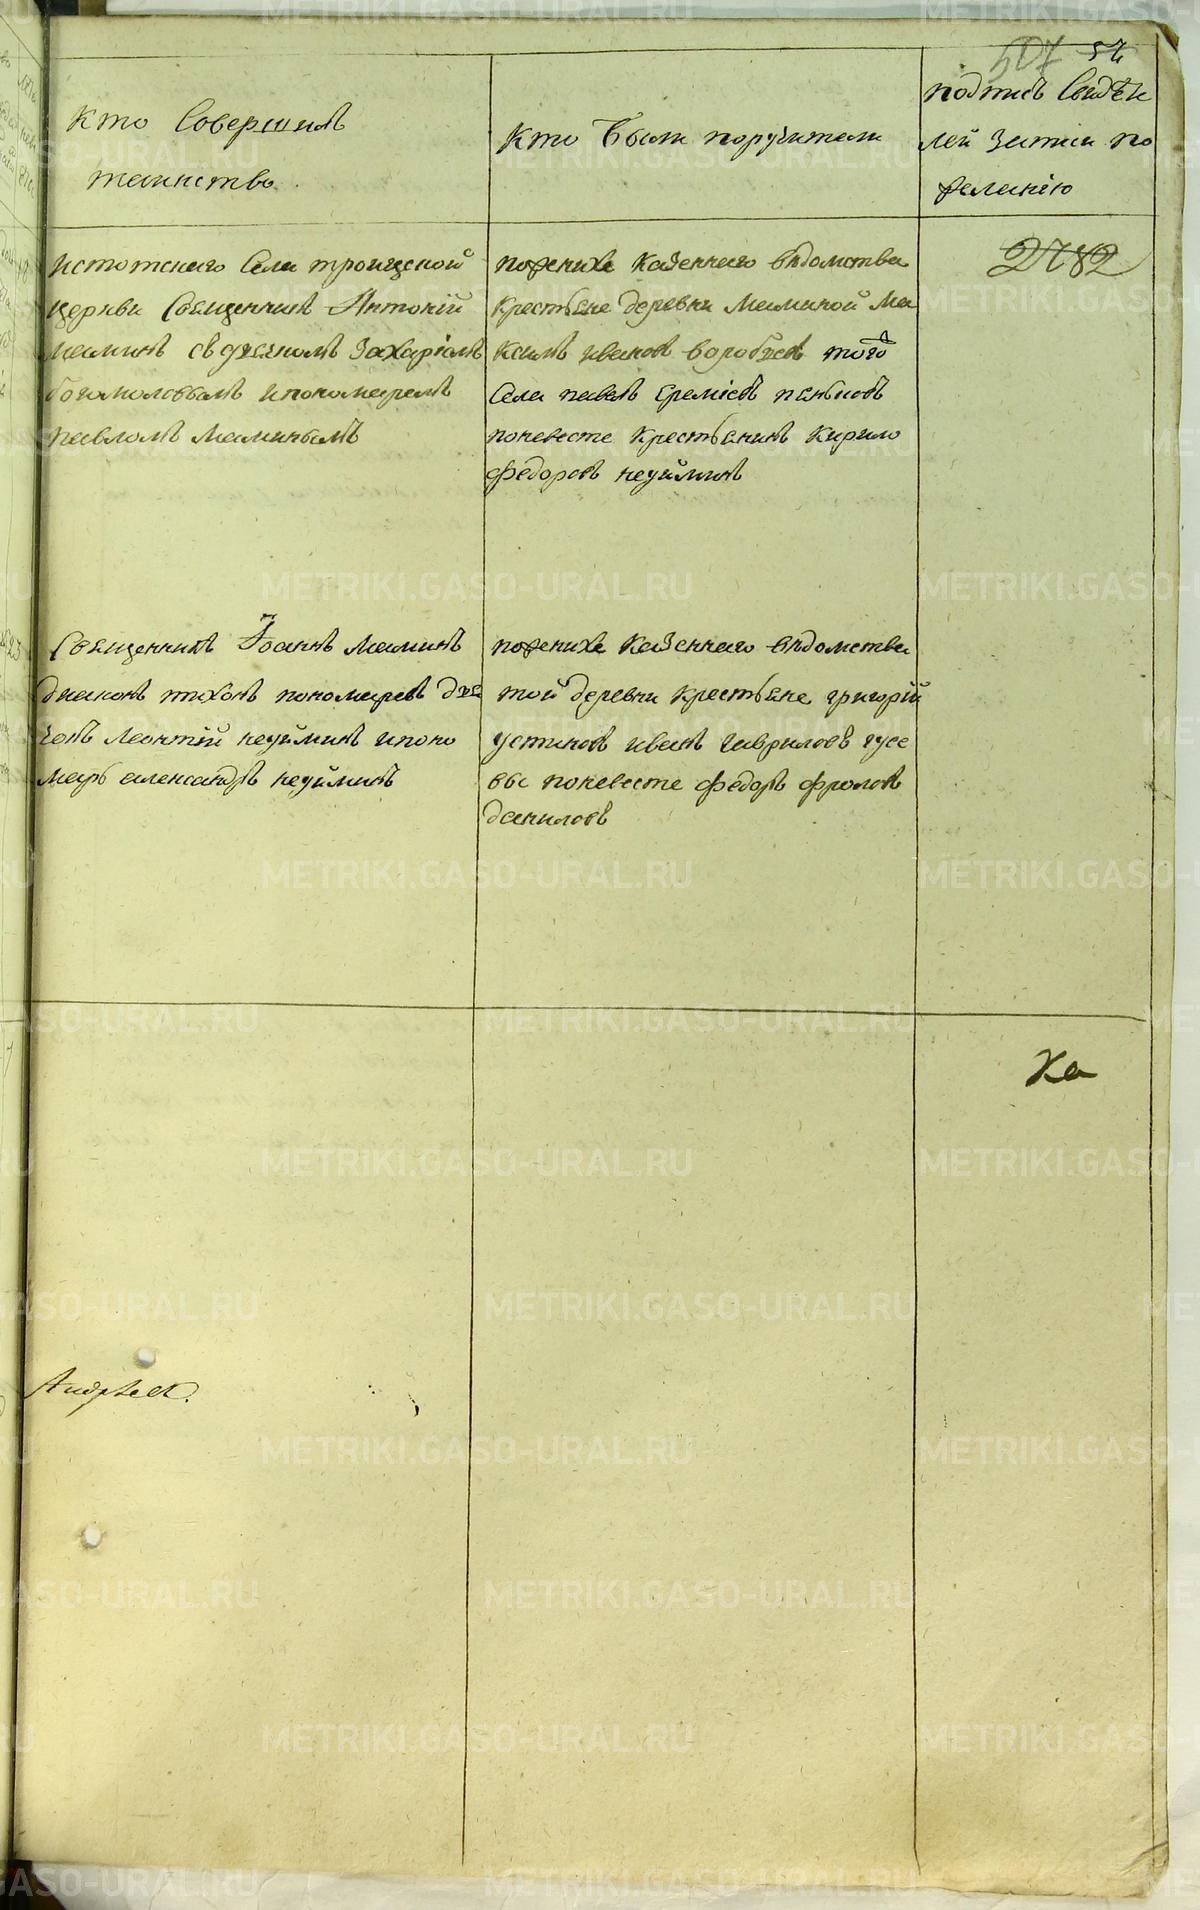 507 57
Кто Совершилъ
таинство.
Кто были поручители
подписъ Свидѣте
лей записи по
желанію
Истотскаго Села троицкой
церкви Священникъ Антоній
маминъ сдьячкомъ Захаріемъ
богомоловымъ ипономаремъ
павломъ маминымъ
пожениха казеннаго вѣдомства
крестьяне деревни маминой ма
ксимъ ивановъ воробьевъ того
села павелъ еремѣевъ пьянковъ
поневесте крестьянинъ кирило
федоровъ неуйминъ
2782
Священникъ Іоаннъ маминъ
диаконъ тихонъ пономаревъ дья
чекъ леонтій неуйминъ ипоно
марь александръ неуйминъ
пожениха казеннаго вѣдомства
той деревни крестьяне григорій
устиновъ иванъ гавриловъ гусе
вы поневесте федоръ фроловъ
даниловъ
Ка
Андреев.
METRIKI.GASO-URAL.RU